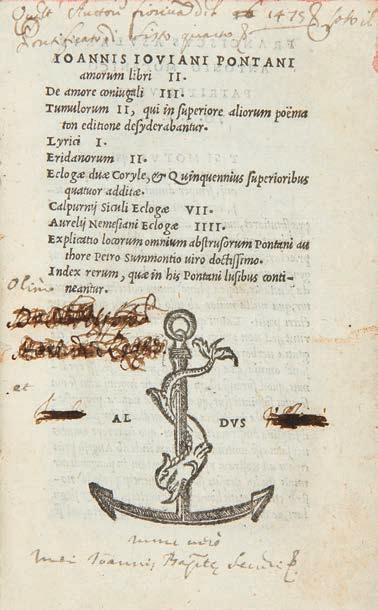 1475
Pontificatu
IOANNIS IOVIANI PONTANI
amorum libri II.
De amore coniugali III.
Tumulorum II, qui in superiore aliorum poëma
ton editione desyderabantur.
Lyrici I.
Eridanorum II.
Eclogæ duæ Coryle, & Quinquennius superioribus
quatuor additæ.
Calpurnij Siculi Eclogæ VII.
Aurelij Nemesiani Eclogæ IIII.
Explicatio locorum omnium abstrusorum Pontani au
thore Petro Summontio uiro doctissimo.
Index rerum, quæ in his Pontani lusibus conti-
neantur.
Olim
et
AL DVS
nunc uero
mei Ioannis